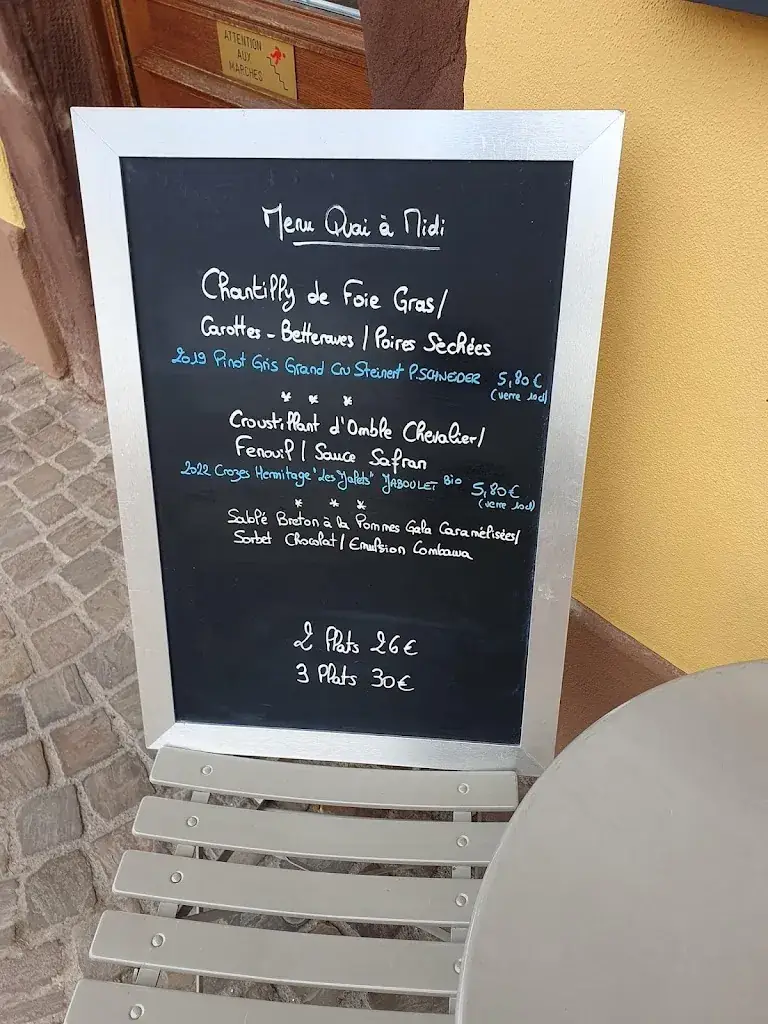 ATTENTION
AUX
MARCHES
Menu Quai à Midi
Chantilly de Foie Gras/
Carottes - Betteraves / Poires Sèchées
2019 Pinot Gris Grand Cru Steinert P.SCHNEIDER 5,80€
(verre 10cl)
* * *
Croustillant d'Omble Chevalier/
Fenouil / Sauce Safran
2022 Crozes Hermitage "Les Jalets" JABOULET Bio 5,80€
(verre 10cl)
* * *
Sablé Breton à la Pommes Gala Caramélisées/
Sorbet Chocolat / Emulsion Combawa
2 Plats 26€
3 Plats 30€